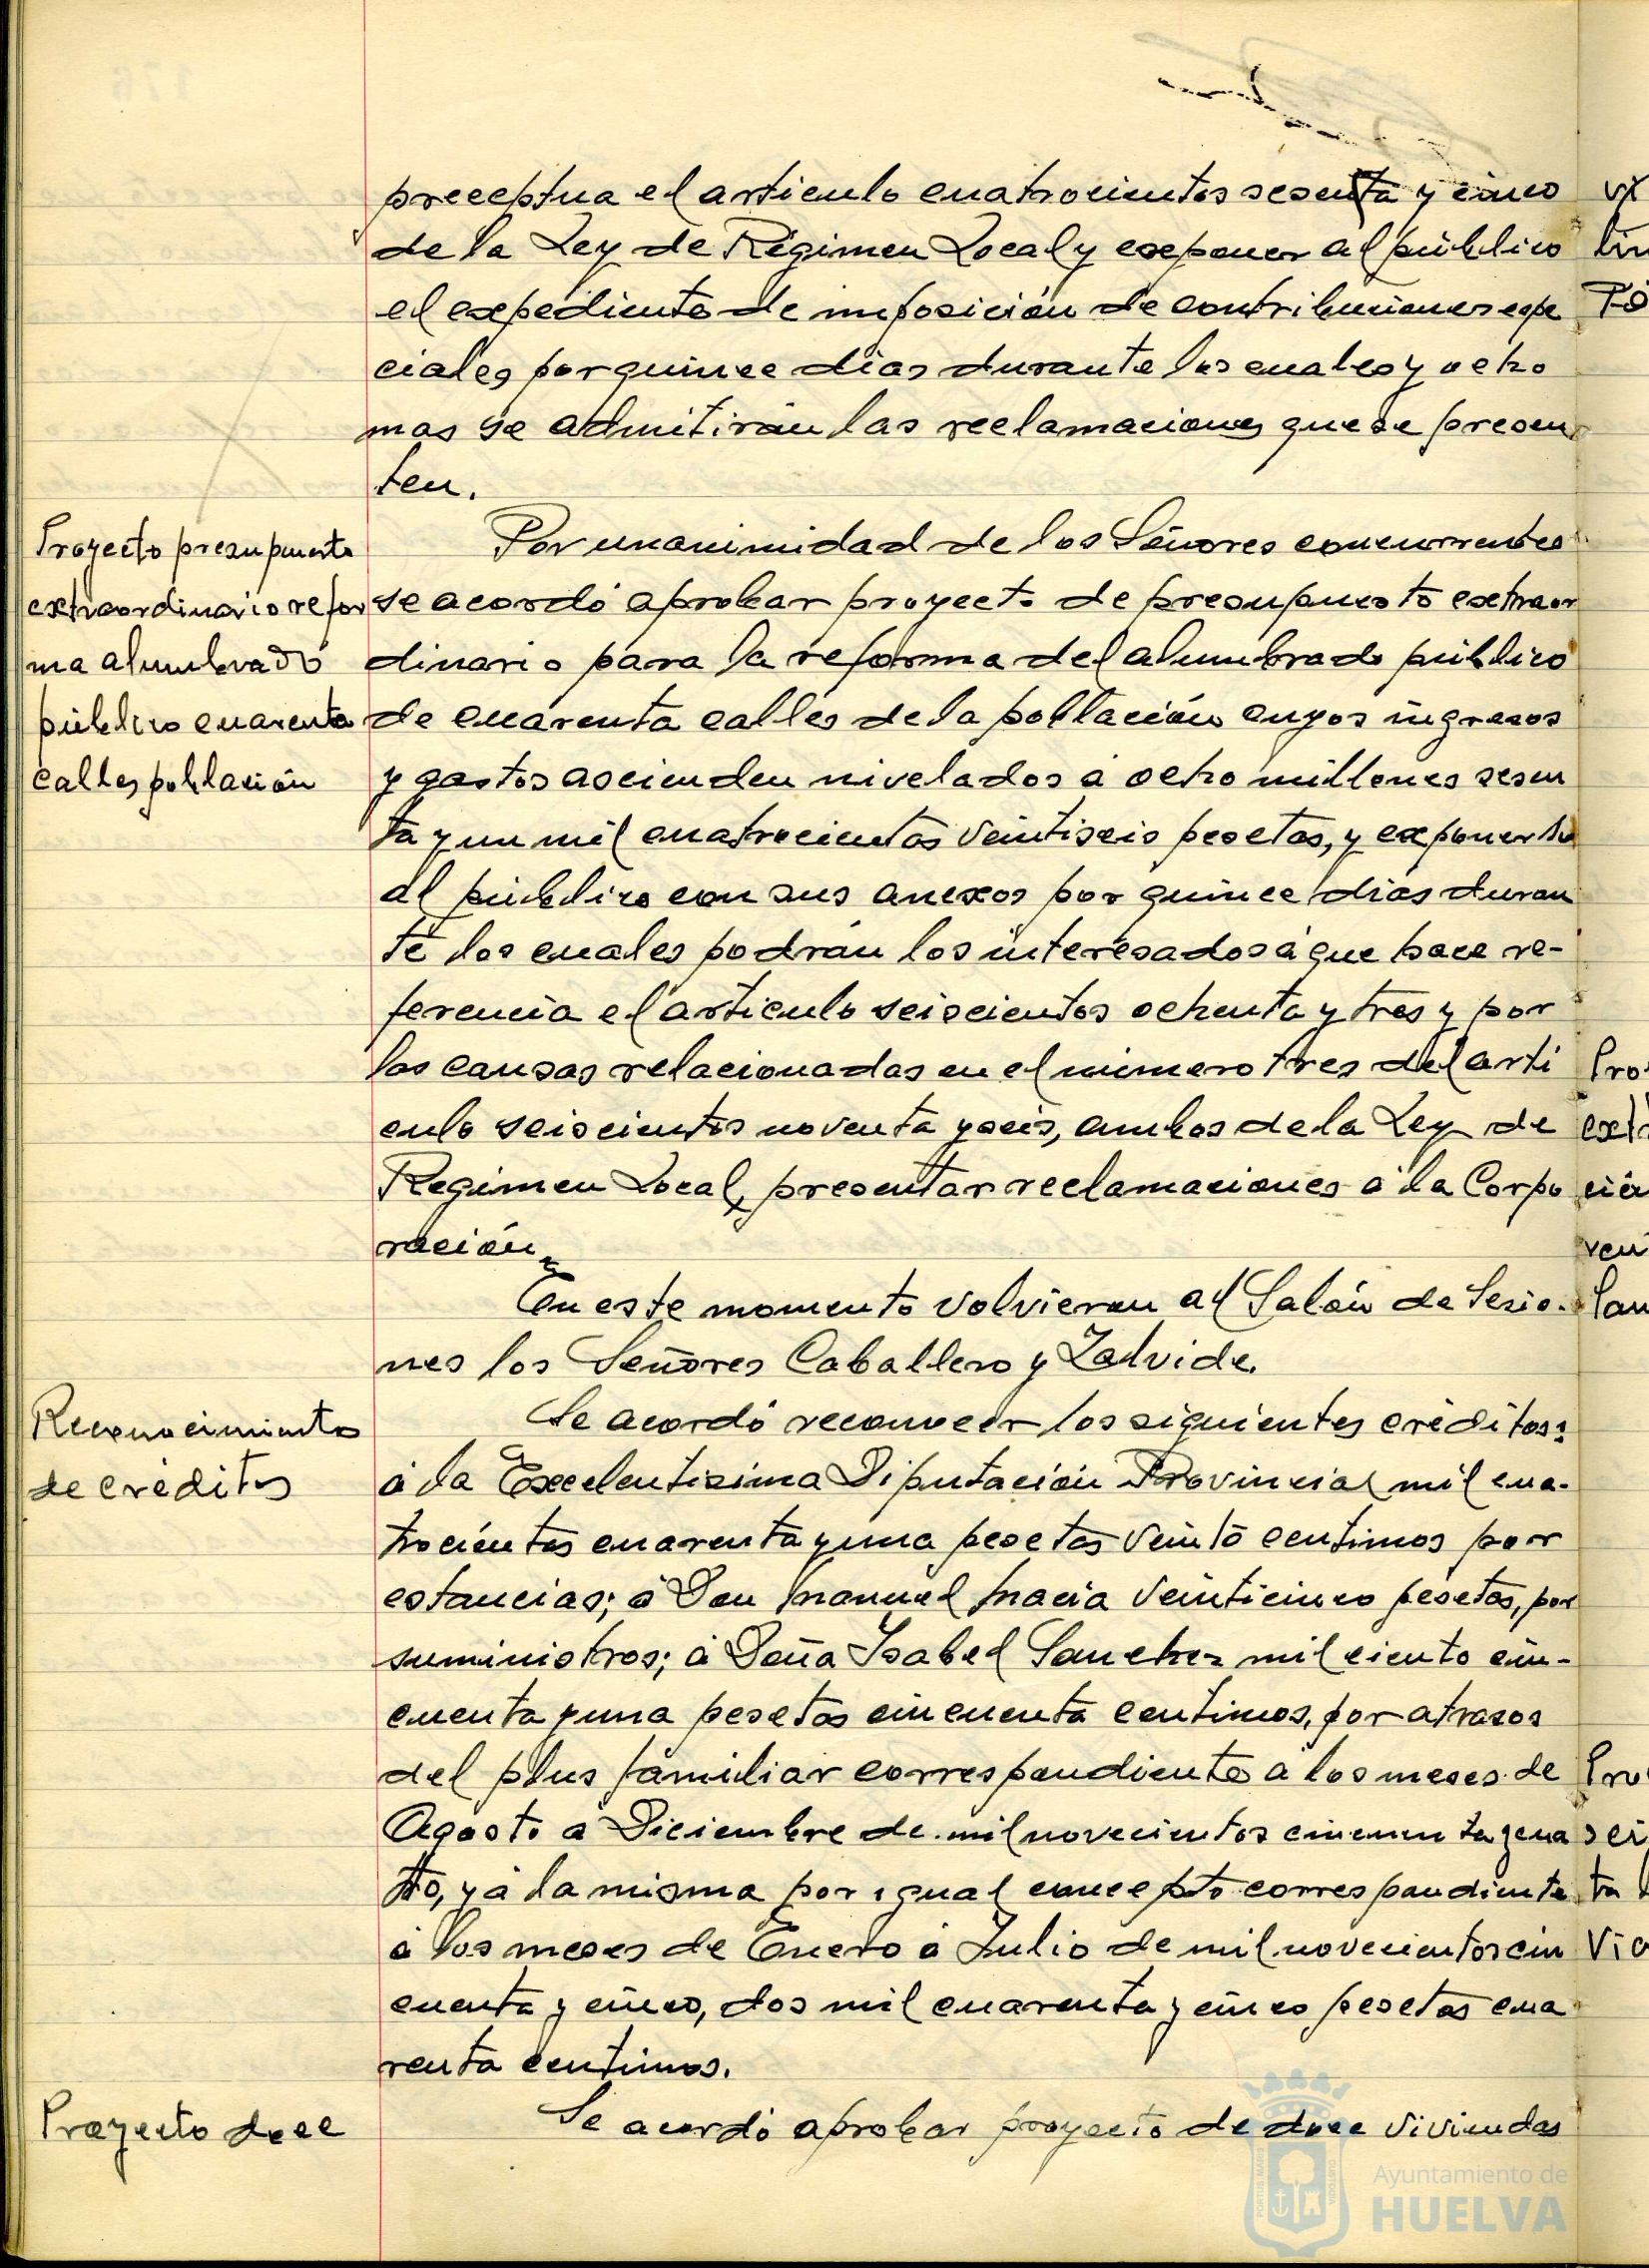 preceptua el articulo cuatrocientos sesenta y cinco
de la Ley de Régimen Local y exponer al público
el expediente de imposición de contribuciones espe
ciales por quince dias durante los cuales y ocho
mas se admitirán las reclamaciones que se presen
ten.
Proyecto presupuesto
extraordinario refor
ma alumbrado
público cuarenta
calles población
Por unanimidad de los Señores concurrentes
se acordó aprobar proyecto de presupuesto extraor
dinario para la reforma del alumbrado público
de cuarenta calles de la población cuyos ingresos
y gastos ascienden nivelados a ocho millones sesen
ta y un mil cuatrocientas veintiseis pesetas, y exponerlo
al público con sus anexos por quince dias duran
te los cuales podrán los interesados a que hace re-
ferencia el articulo seiscientos ochenta y tres y por
las causas relacionadas en el número tres del arti
culo seiscientos noventa y seis, ambos de la Ley de
Regimen Local, presentar reclamaciones a la Corpo
ración.
En este momento volvieron al Salón de Sesio-
nes los Señores Caballero y Zalvide.
Reconocimiento
de créditos
Se acordó reconocer los siguientes créditos:
a la Excelentisima Diputación Provincial mil cua-
trocientas cuarenta y una pesetas veinte centimos por
estancias; a Don Manuel Macia veinticinco pesetas, por
suministros; a Doña Isabel Sanchez mil ciento cin-
cuenta y una pesetas cincuenta centimos, por atrasos
del plus familiar correspondiente a los meses de
Agosto a Diciembre de mil novecientos cincuenta y cua
tro, y a la misma por igual concepto correspondiente
a los meses de Enero a Julio de mil novecientos cin
cuenta y cinco, dos mil cuarenta y cinco pesetas cua
renta centimos.
Proyecto doce
Se acordó aprobar proyecto de doce viviendas
Ayuntamiento de
HUELVA